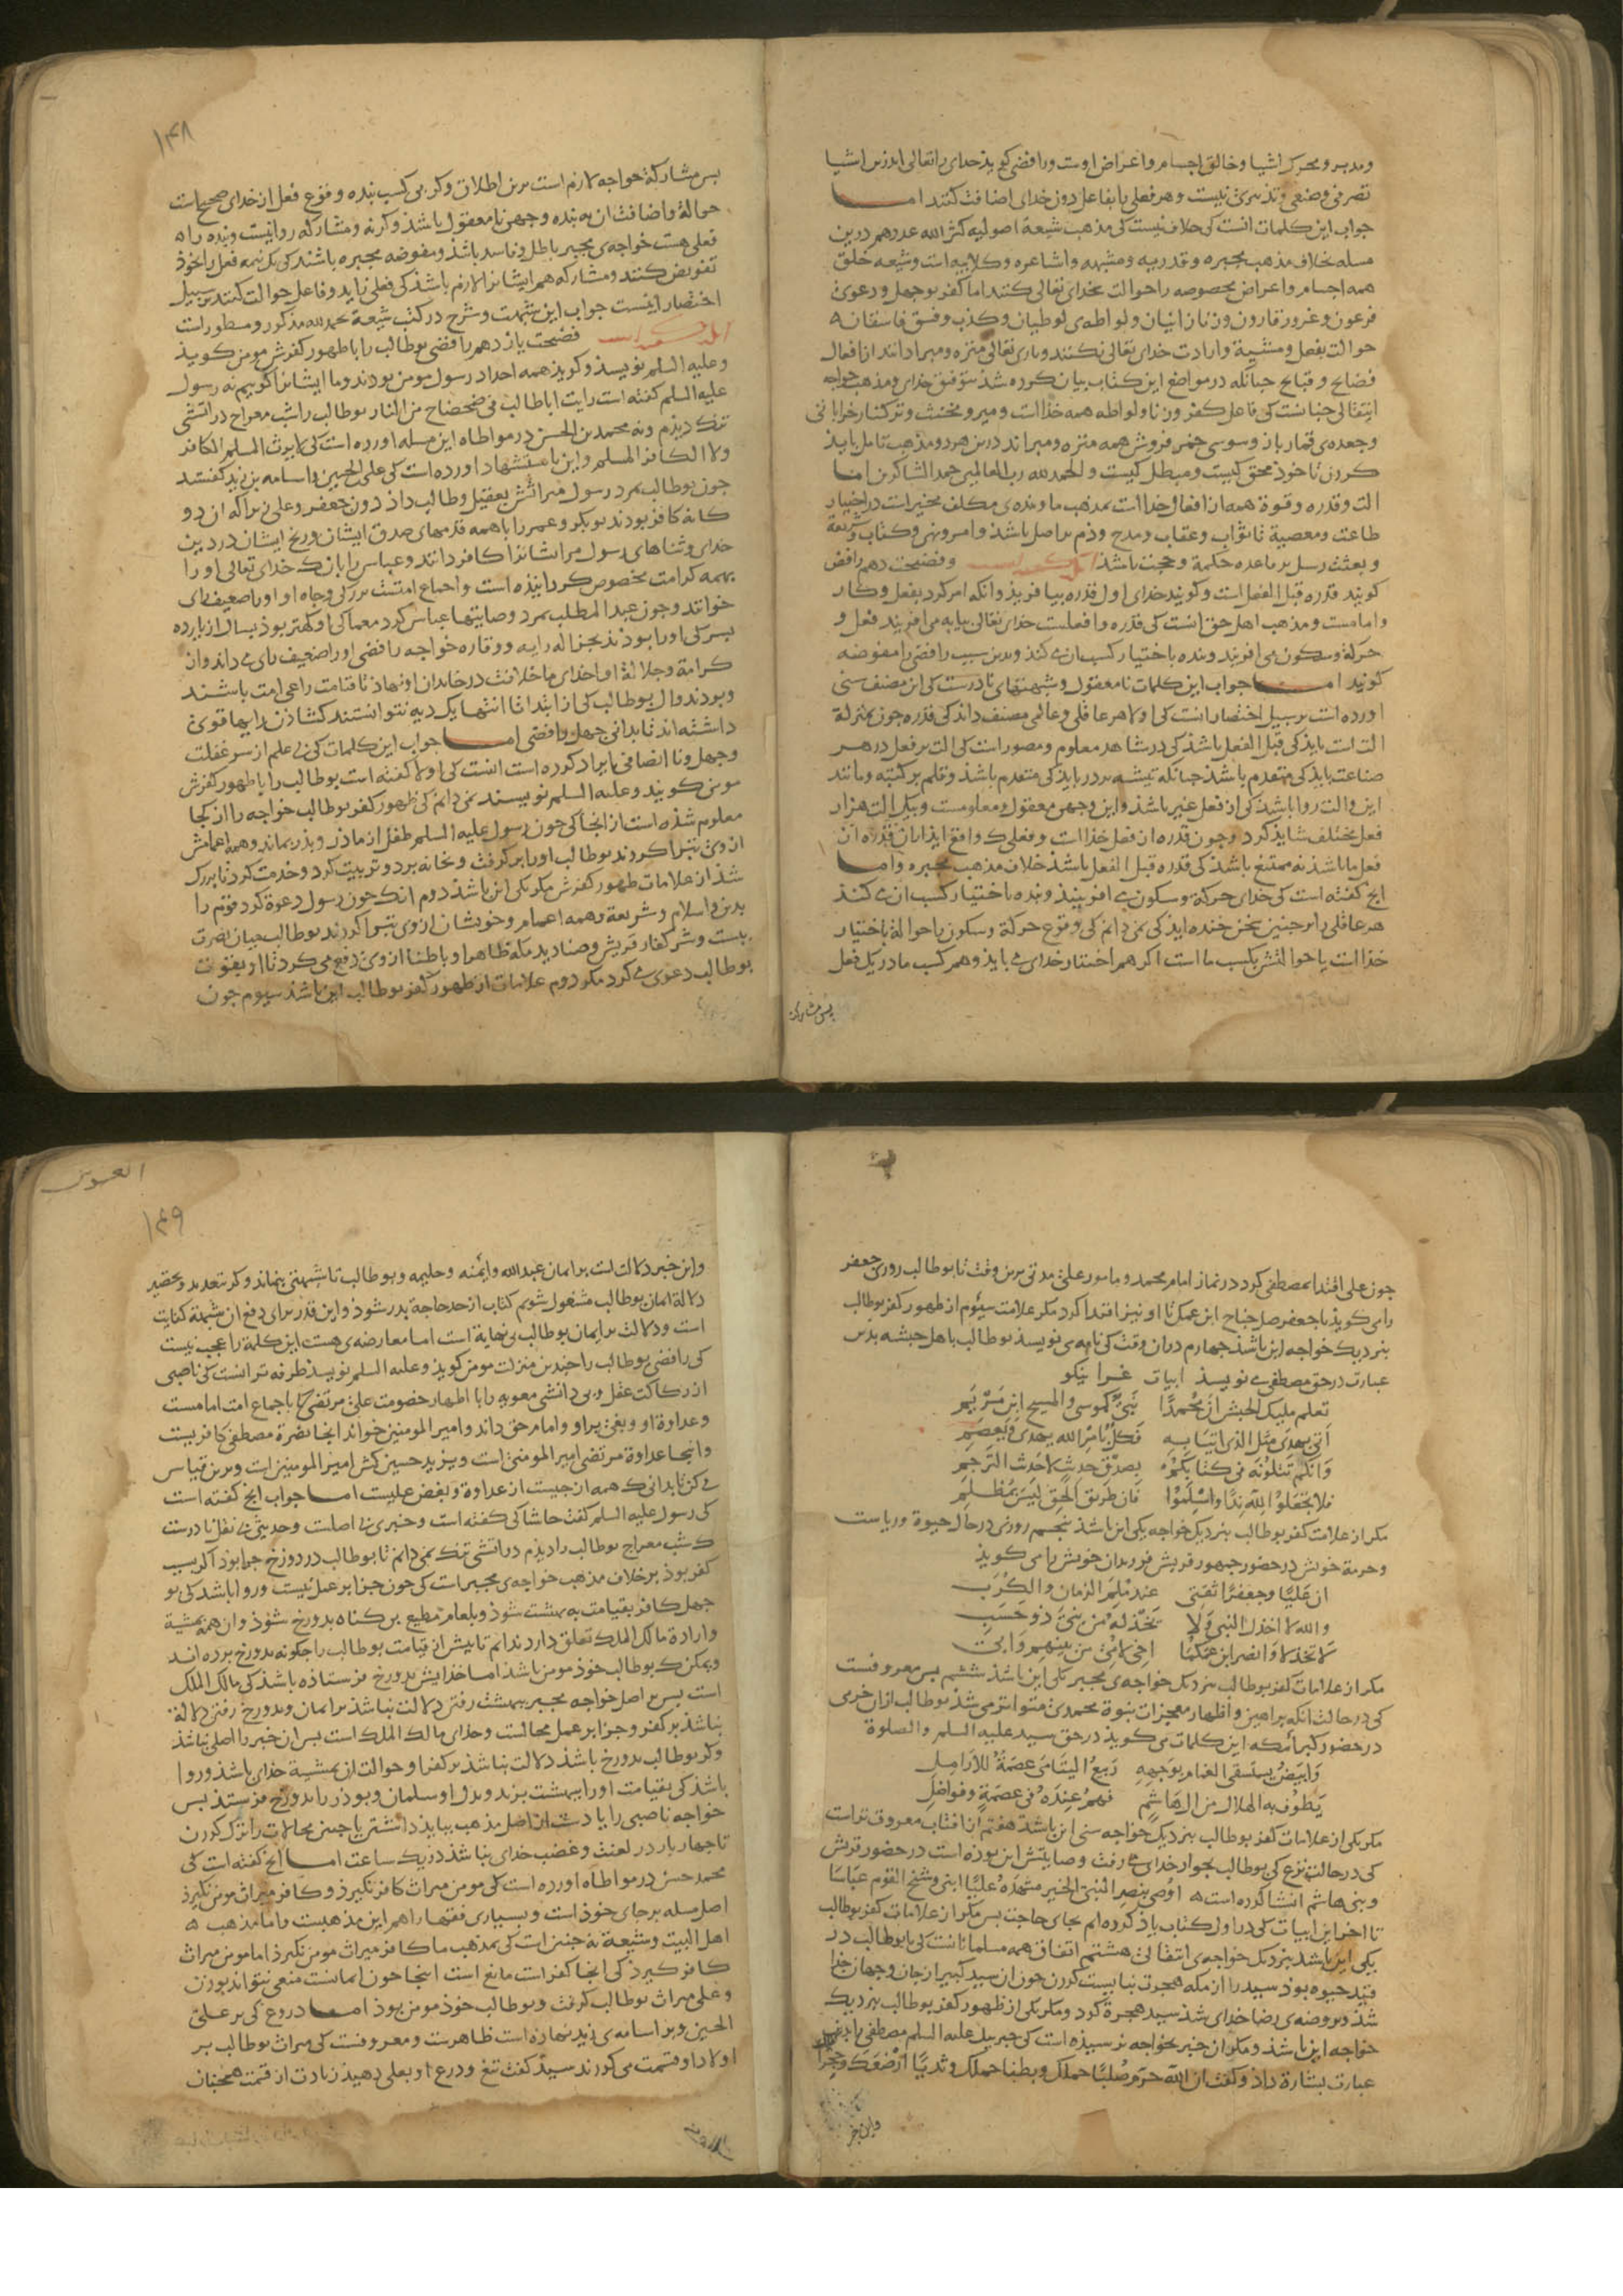 ومدبر ومحرک اشیا وخالق اجسام واعراض اوست ورافضی کوید خدای را تعالی اندرین اشیا
تصرفی وصنعی وتدبیری نیست وهر فعلی را بفاعل دون خدای اضافت کنند اما
جواب این کلمات آنست کی خلاف نیست کی مذهب شیعة اصولیه کثر الله عددهم درین
مسله بخلاف مذهب مجبره وقدریه ومشبهه واشاعره وکلابیه است وشیعه خلق
همه اجسام واعراض مخصوصه را حوالت بخدای تعالی کنند اما کفر بوجهل ودعوی
فرعون وغرور قارون وزنا زانیان ولواطه‌ی لوطیان وکذب وفسق فاسقان
حوالت بفعل ومشیة وارادت خدای تعالی نکنند وباری تعالی منزه ومبرا دانند از افعال
فضایح وقبایح جنانکه در مواضع این کتاب بیان کرده شذ بتوفیق خدای ومذهب خواجه
انتقالی جنانست کی فاعل کفر وزنا ولواطه همه خذا است
وجعده‌ی قمارباز وسوسی خمرفروش همه منزه ومبرااند درین هر دو مذهب تامل بایذ
کردن تا خوذ محق کیست ومبطل کیست والحمدلله رب العالمین حمد الشاکرین اما
الت وقدره وقوة همه از افعال خدا است بمذهب ما وبنده‌ی مکلف مخیرست در اختیار
طاعت ومعصیة تا ثواب وعقاب ومدح وذم بر اصل باشذ وامر ونهی وکتاب وشریعة
وبعثت رسل بر قاعده حکمة وحجت باشذ وفضیحت دهم رافضی
کویند قدره قبل الفعل است وکویند خدای اول قدره بیافریذ وانکه امر کرد بفعل وکار
واما مست ومذهب اهل حق انست کی قدره وافعلست خدای تعالی بیابه می افریند فعل و
حرکة وسکون می افریند وبنده باختیار کسب ان می کنذ وبدین سبب رافضی را مفوضه
کویند اما جواب این کلمات نامعقول وشبهتهای نادرست کی این مصنف سنی
اورده است بر سبیل اختصار انست کی اولا هر عاقلی وعالمی مصنف داند کی قدره جون بمنزلة
الت است بایذ کی قبل الفعل باشذ کی در شاهد معلوم ومصور است کی الت بر فعل در هر
صناعت بایذ کی متقدم باشذ جنانکه تیشه بر در بایذ کی متقدم باشذ وقلم بر کتبه ومانند
این والت روا باشذ کی از فعل غیر باشذ واین وجهی معقول ومعلومست وبیک الت هزار
فعل مختلف شاید کرد وجون قدره از فعل خذا است وفعلی کی واقع ایذ از ان قدره ان
فعل ما باشذ نه ممتنع باشذ کی قدره قبل الفعل باشذ خلاف مذهب مجبره واما
انج کفته است کی خدای حرکة وسکون می افرینذ وبنده باختیار کسب ان می کنذ
هر عاقلی را بر جنین سخن خنده ایذ کی نمی دانم کی وقوع حرکة وسکون را حوالة باختیار
خذا است یا حوالتش بکسب ما است اکر هم اختیار خدای می بایذ وهم کسب ما در یک فعل
پس مشارکة
۱۴۸
بس مشارکة خواجه لازم است برین اطلاق وکر بی کسب بنده وقوع فعل از خدای صحیح است
حوالة واضافت ان به بنده وجهی نامعقول باشذ وکر نه ومشارکه روا نیست وبنده را
فعلی هست خواجه‌ی مجبر باطل وفاسد باشذ ومفوضه مجبره باشند کی یک نیمه فعل را بخوذ
تفویض کنند ومشارکه هم ایشانرا لازم باشذ کی فعلی زاید وفاعل حوالت کنند بر سبیل
اختصار اینست جواب این شبهت وشرح در کتب شیعة بحمدلله مذکور ومسطور است
فضیحت یازدهم رافضی بوطالب را با ظهور کفرش مومن کویذ
وعلیه السلم نویسذ وکویذ همه اجداد رسول مومن بودند وما ایشانرا کوییم نه رسول
علیه السلم کفته است رایت اباطالب فی ضحضاح من النار بوطالب را شب معراج در اتشی
تنک دیذم ونه محمد بن الحسن در مواطاه این مسله اورده است کی لا یرث المسلم الکافر
ولا الکافر المسلم واین باستشهاد اورده است کی علی الحسین واسامه بن زید کفتند
جون بوطالب بمرد رسول میراثش بعقیل وطالب داد دون جعفر وعلی زیرا که ان دو
کانه کافر بودند بوبکر وعمر را با همه قدمهای صدق ایشان ورنج ایشان در دین
خدای وثناهای رسول مر ایشانرا کافر دانند وعباس را بانک خدای تعالی او را
بهمه کرامت مخصوص کردانیذه است واجماع امتست بزرکی وجاه او او را ضعیف رای
خوانند وجون عبدالمطلب بمرد وصایتها عباس کرد
کرامة وجلالة او خدای ما خلافت در خاندان او نهاذ تا قیامت راعی امت باشند
وبودند وال بوطالب کی از ابتدا تا انتها یک دیه نتوانستند کشاذن بدایها قوی
داشته اند تا بدانی جهل رافضی اما جواب این کلمات کی بی علم از سر غفلت
وجهل ونا انصافی ایراد کرده است انست کی اولا کفته است بوطالب را با ظهور کفرش
مومن کویند وعلیه السلم نویسند نمی دانم کی ظهور کفر بوطالب خواجه را از کجا
معلوم شذه است از انجا کی جون رسول علیه السلم طفل از ماذر وپذر بماند وهمه اعمامش
از وی تبرا کردند بوطالب او را بر کرفت وبخانه برد وتربیت کرد وخدمت کرد تا بزرک
شذ از علامات ظهور کفرش مکر یکی این باشذ دوم انک جون رسول دعوة کرد قوم را
بدین واسلام وشریعة وهمه اعمام وخویشان از وی تبرا کردند بوطالب میان بنصرت
ببست وشر کفار قریش وصنادید مکه ظاهرا وباطنا از وی دفع می کرد تا او بقوت
بوطالب دعوی می کرد مکر دوم علامات از ظهور کفر بوطالب این باشذ سیوم جون
جون علی اقتدا بمصطفی کرد در نماز امام محمد وماموم علی مدتی برین وقت تا بوطالب روزی جعفر
را می کویذ یا جعفر صل جناح ابن عمک تا او نیز اقتدا کرد مکر علامت سیوم از ظهور کفر بوطالب
بنزدیک خواجه این باشذ جهارم دران وقت کی نامه می نویسذ بوطالب باهل حبشه بدین
عبارت در حق مصطفی می نویسذ ابیات غرا نیکو
تعلم ملیک الحبش ان محمدا نبی کموسی والمسیح ابن مریم
اتی بهدی مثل الذی اتیا به فکل بامر الله یهدی ویعصم
وانکم تتلونه فی کتابکم بصدق حدیث لا حدیث الترجم
فلا تجعلوا لله ندا واسلموا فان طریق الحق لیس بمظلم
مکر از علامات کفر بوطالب بنزدیک خواجه یکی این باشذ بنجم روزی در حال حیوة وریاست
وحرمة خویش در حضور جمهور قریش فرزندان خویش را می کویذ
ان علیا وجعفرا ثقتی عند ملم الزمان والکرب
والله لا اخذل النبی ولا یخذله من بنی ذو حسب
لا تخذلا وانصرا ابن عمکما اخی لامی من بینهم وابی
مکر از علامات کفر بوطالب بنزدیک خواجه‌ی مجبر یکی این باشذ ششم بس معروفست
کی در حالت انکه براهین واظهار معجزات نبوة محمدی متواتر می شذ بوطالب از ان خرمی
در حضور کبراء مکه این کلمات می کویذ در حق سید علیه السلم والصلوة
وابیض یستسقی الغمام بوجهه ربیع الیتامی عصمة للارامل
یطوف به الهلاک من ال هاشم فهم عنده فی عصمة وفواضل
مکر یکی از علامات کفر بوطالب بنزدیک خواجه سنی این باشذ هفتم از افتاب معروف تر است
کی در حالت نزع کی بوطالب بجوار خدای می رفت وصایتش این بوذه است در حضور قریش
وبنی هاشم انشا کرده است اوصی بنصر النبی الخیر مشهده علیا ابنی وشیخ القوم عباسا
تا اخر این ابیات کی در اول کتاب یاذ کرده ام بجای حاجت بس مکر از علامات کفر بوطالب
یکی این باشذ بنزدیک خواجه‌ی انتقالی هشتم اتفاق همه مسلمانانست کی تا بوطالب در
قید حیوه بوذ سید را از مکه هجرت نبایست کردن جون ان سید کبیر از جان وجهان جذا
شذ وبروضه‌ی رضا خدای شذ سید هجرة کرد ومکر یکی از ظهور کفر بوطالب بنزدیک
خواجه این باشذ ومکر ان خبر بخواجه نرسیذه است کی جبریل علیه السلم مصطفی را بدین
عبارت بشارة داذ وکفت ان الله حرم صلبا حملک وبطنا حملک وثدیا ارضعک وحجرا
واین خبر
۱۴۹
واین خبر دلالت است بر ایمان عبدالله وآمنه وحلیمه وبوطالب تا شبهتی بنماند وکر بتعدید وتحقیق
دلالة ایمان بوطالب مشغول شویم کتاب از حد حاجة بدر شوذ واین قدر برای دفع ان شبهة کفایت
است ودلالت بر ایمان بوطالب بی نهایة است اما معارضه‌ی هست این کلمة را عجب نیست
کی رافضی بوطالب را جندین منزلت مومن کویذ وعلیه السلم نویسذ طرفه تر انست کی ناصبی
از رکاکت عقل وبی دانشی معویه را با اظهار خصومت علی مرتضی کی باجماع امت امامست
وعداوة او وبغی بر او وامام حق داند وامیر المومنین خواند انجا نصرة مصطفی کافریست
واینجا عداوة مرتضی امیر المومنی است ویزید حسین کش امیر المومنین است وبرین قیاس
می کن تا بدانی ک همه از جیست از عداوة وبغض علیست اما جواب انج کفته است
کی رسول علیه السلم کفت حاشا کی کفته است وخبری بی اصلست وحدیثی بی نقل نادرست
ک شب معراج بوطالب را دیذم در اتشی تنک نمی دانم تا بوطالب در دوزخ جرا بوذ اکر بسبب
کفر بوذ بر خلاف مذهب خواجه‌ی مجبر است کی جون جزا بر عمل نیست وروا باشد کی بو
جهل کافر بقیامت به بهشت شوذ وبلعام مطیع بی کناه بدوزخ شوذ وان همه بمشیة
وارادة مالک الملک تعلق دارد ندانم تا بیش از قیامت بوطالب را جکونه بدوزخ برده اند
ویمکن ک بوطالب خوذ مومن باشذ اما خذایش بدوزخ فرستاذه باشذ کی مالک الملک
است بس بر اصل خواجه مجبر ببهشت رفتن دلالت نباشذ بر ایمان وبدوزخ رفتن دلالة
نباشذ بر کفر وجزا بر عمل محالست وخدای مالک الملک است بس ان خبر را اصلی نباشذ
وکر بوطالب بدوزخ باشذ دلالت نباشذ بر کفر او وحوالت ان بمشیة خدای باشذ وروا
باشذ کی بقیامت او را ببهشت برند وبدل او سلمان وبوذر را بدوزخ فرستند بس
خواجه ناصبی را یا دست از اصل مذهب ببایذ داشتن یا جنین محالات را ترک کردن
تا جهار بار در لعنت وغضب خدای نباشذ در یک ساعت اما انج کفته است کی
محمد حسن در مواطاه اورده است کی مومن میراث کافر نکیرذ وکافر میراث مومن نکیرذ
اصل مسله بر جای خوذ است وبسیاری فقها را هم این مذهبست واما مذهب
اهل البیت وشیعة نه جنین است کی بمذهب ما کافر میراث مومن نکیرذ اما مومن میراث
کافر کیرذ کی انجا کفر است مانع است اینجا جون ایمانست منعی نتواند بوذن
وعلی میراث بوطالب کرفت وبوطالب خوذ مومن بوذ اما دروغ کی بر علی
الحسین وبر اسامه‌ی زید نهاذه است ظاهرست ومعروفست کی میراث بوطالب بر
اولاد او قسمت می کردند سید کفت تیغ ودرع او بعلی دهیذ زیادت از قسمت همجنان